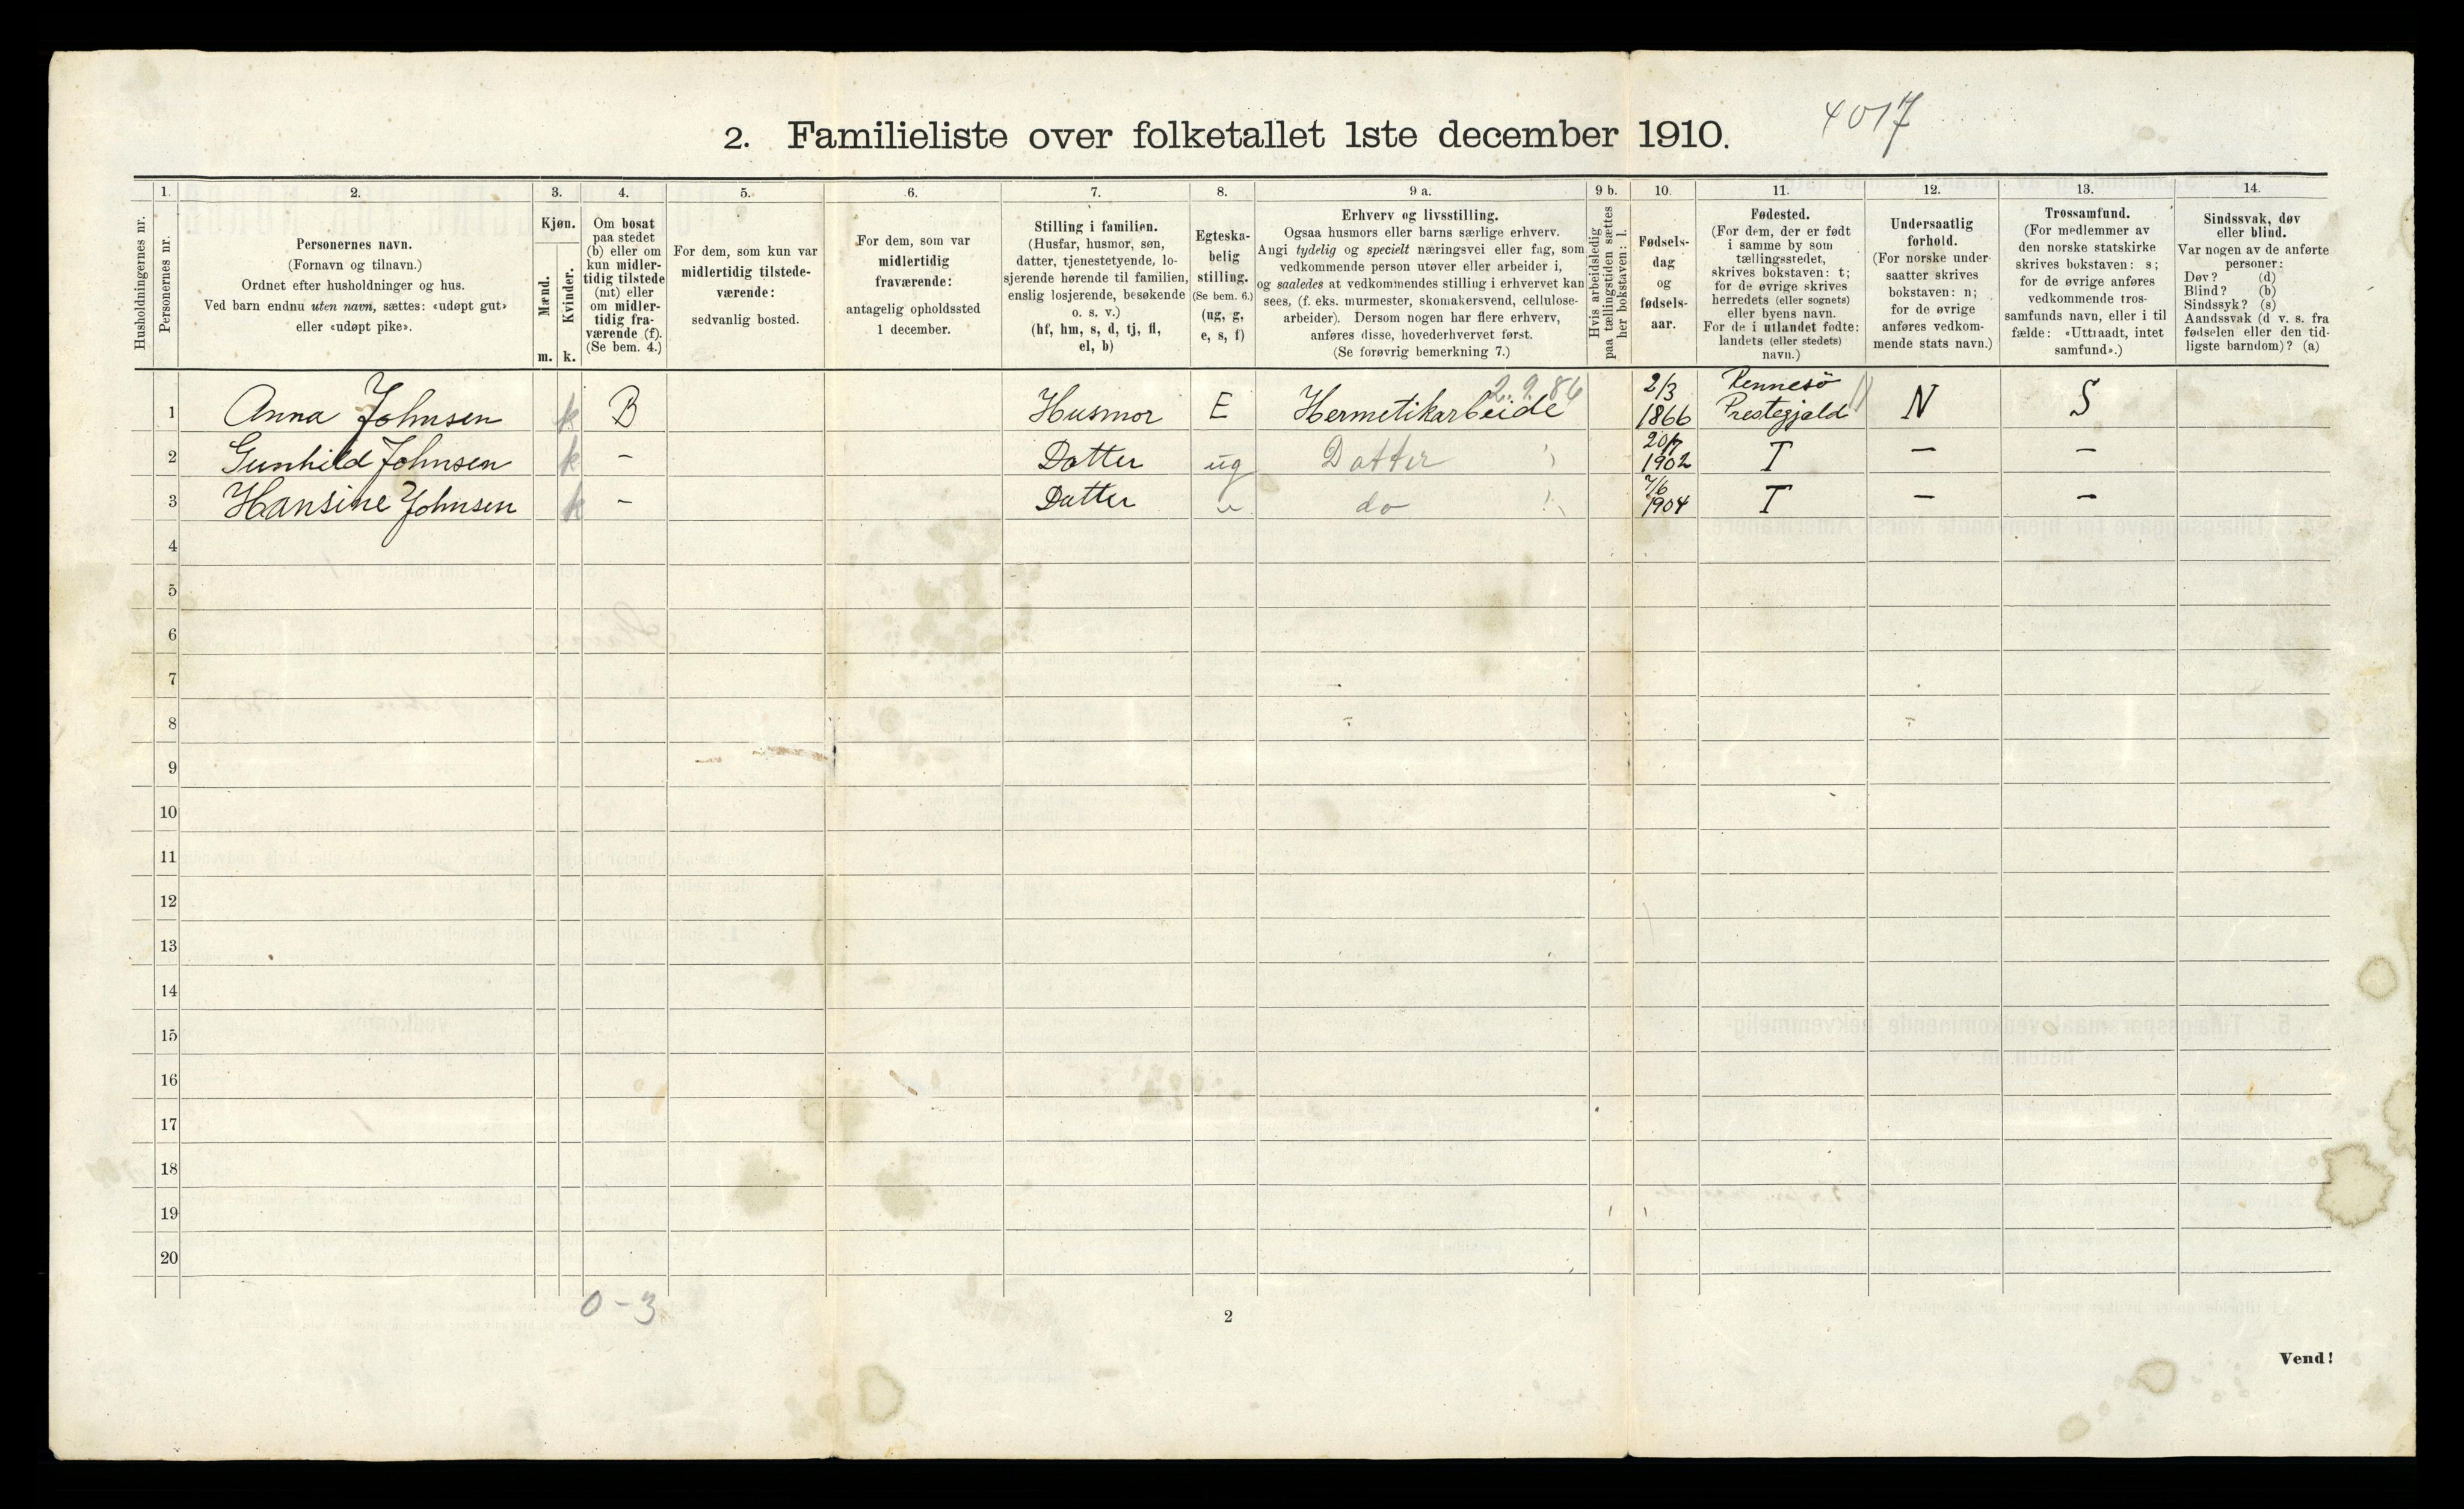 4017
2. Familieliste over folketallet 1ste december 1910.
Husholdningernes nr.
1.
Personernes nr.
2.
Personernes navn.
(Fornavn og tilnavn.)
Ordnet efter husholdninger og hus.
Ved barn endnu uten navn, sættes: «udøpt gut»
eller «udøpt pike».
3.
Kjøn.
Mænd.
Kvinder.
m. k.
4.
Om bosat
paa stedet
(b) eller om
kun midler-
tidig tilstede
(mt) eller
om midler-
tidig fra-
værende (f).
(Se bem. 4.)
5.
For dem, som kun var
midlertidig tilstede-
værende:
sedvanlig bosted.
6.
For dem, som var
midlertidig
fraværende:
antagelig opholdssted
1 december.
7.
Stilling i familien.
(Husfar, husmor, søn,
datter, tjenestetyende, lo-
sjerende hørende til familien,
enslig losjerende, besøkende
o. s. v.)
(hf, hm, s, d, tj, fl,
el, b)
8.
Egteska-
belig
stilling.
(Se bem. 6.)
(ug, g,
e, s, f)
9 a.
Erhverv og livsstilling.
Ogsaa husmors eller barns særlige erhverv.
Angi tydelig og specielt næringsvei eller fag, som
vedkommende person utøver eller arbeider i,
og saaledes at vedkommendes stilling i erhvervet kan
sees, (f. eks. murmester, skomakersvend, cellulose-
arbeider). Dersom nogen har flere erhverv,
anføres disse, hovederhvervet først.
(Se forøvrig bemerkning 7.)
9 b.
Hvis arbeidsledig
paa tællingstiden sættes
her bokstaven: l.
10.
Fødsels-
dag
og
fødsels-
aar.
11.
Fødested.
(For dem, der er født
i samme by som
tællingsstedet,
skrives bokstaven: t;
for de øvrige skrives
herredets (eller sognets)
eller byens navn.
For de i utlandet fødte:
landets (eller stedets)
navn.)
12.
Undersaatlig
forhold.
(For norske under-
saatter skrives
bokstaven: n;
for de øvrige
anføres vedkom-
mende stats navn.)
13.
Trossamfund.
(For medlemmer av
den norske statskirke
skrives bokstaven: s;
for de øvrige anføres
vedkommende tros-
samfunds navn, eller i til
fælde: «Uttraadt, intet
samfund».)
14.
Sindssvak, døv
eller blind.
Var nogen av de anførte
personer:
Døv? (d)
Blind? (b)
Sindssyk? (s)
Aandssvak (d v. s. fra
fødselen eller den tid-
ligste barndom)? (a)
1 Anna Johnsen k B Husmor E Hermetikarbeide 2.9.86 2/3 1866 Rennesö Prestegjeld N S
2 Gunhild Johnsen k - Datter ug Datter 20/7 1902 T - -
3 Hansine Johnsen k - Datter u do 7/6 1904 T - -
4
5
6
7
8
9
10
11
12
13
14
15
16
17
18
19
20
0-3
2
Vend!